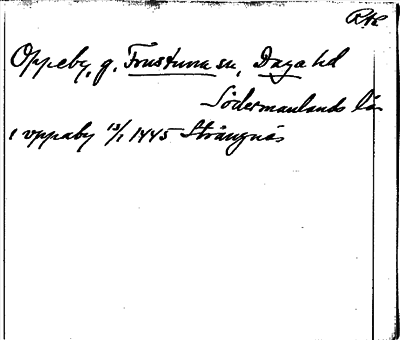 Oppeby, g. Frustuna sn, Daga hd
Södermanlands län
i uppaby 13/1 1445 Strängnäs